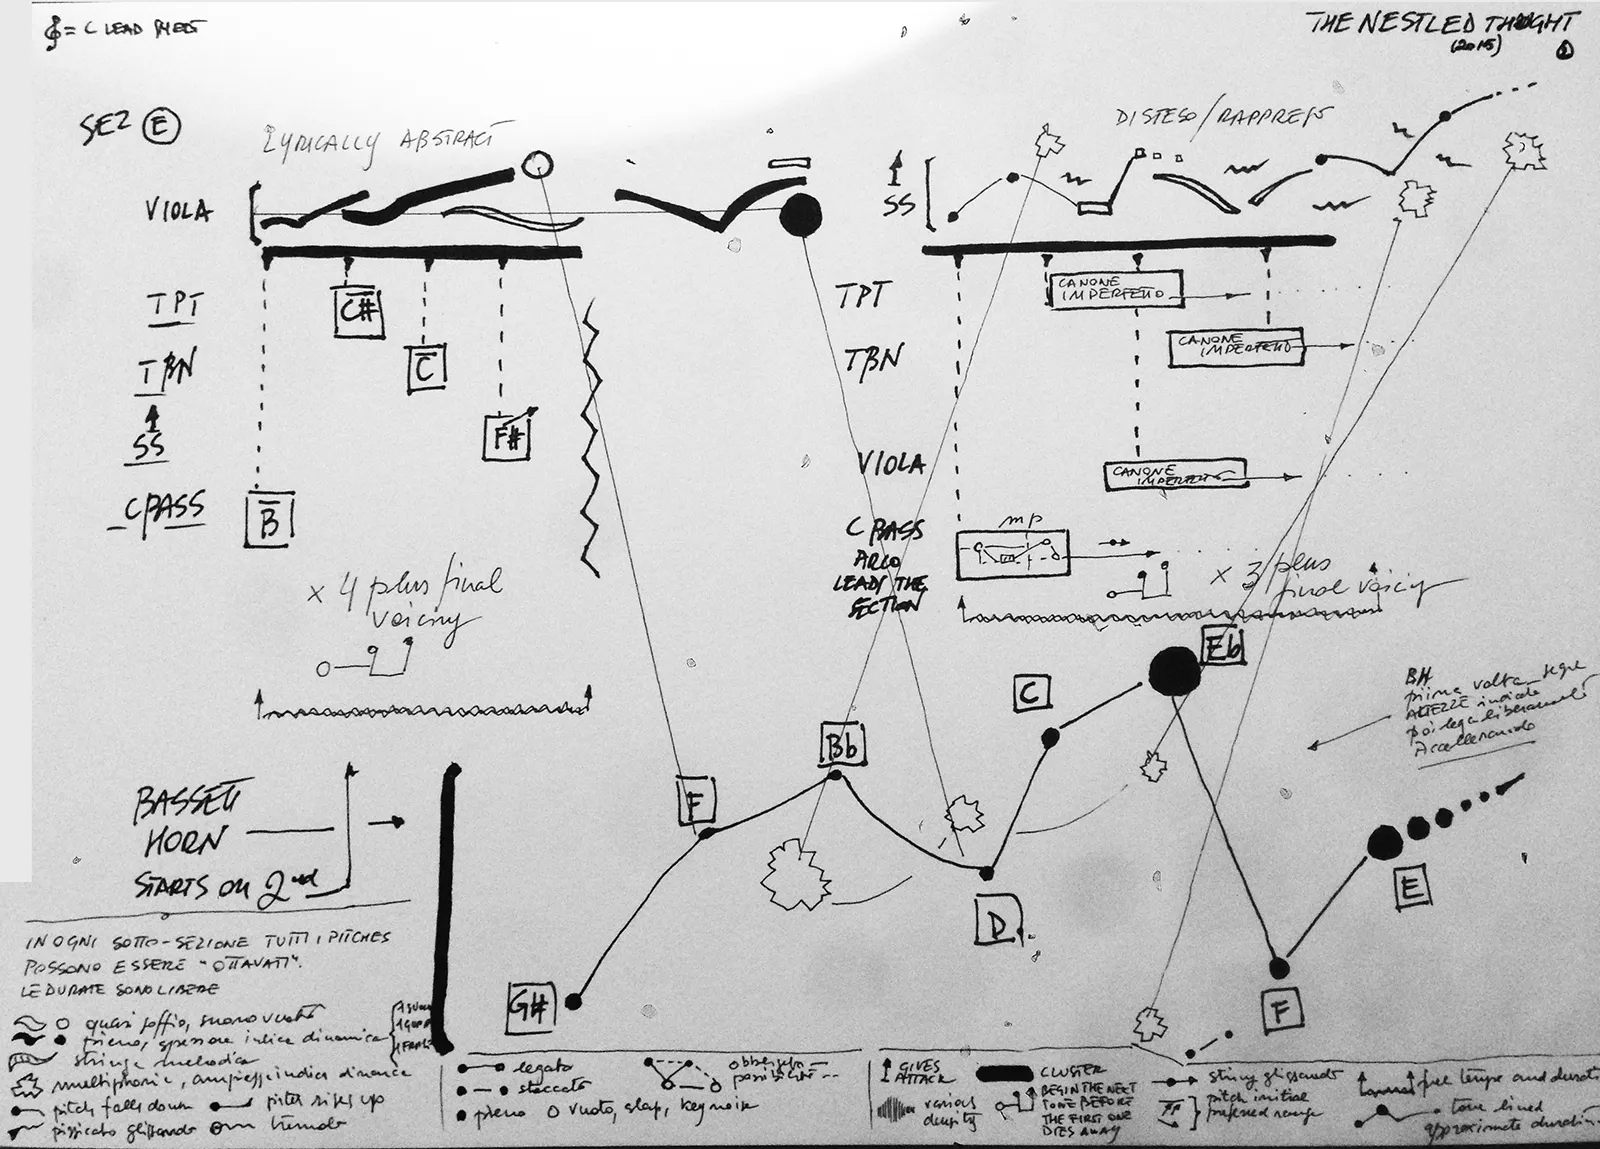 = C LEAD
THE NESTLED THOUGHT
(2015)
SEZ E
LYRICALLY ABSTRACT
VIOLA
TPT
C#
TBN
C
SS
F#
CBASS
B
x 4 plus final
voicing
DISTESO/RAPPRESO
SS
TPT
CANONE
IMPERFETTO
TBN
CANONE
IMPERFETTO
VIOLA
CANONE
IMPERFETTO
C BASS
ARCO
LEADS THE
SECTION
mp
x 3 plus
final voicing
BASSETT
HORN
STARTS ON 2nd
G#
F
Bb
D
C
Eb
F
E
BH
prima volta segue
ALTEZZE indicate
poi lega liberamente
Accellerando
IN OGNI SOTTO-SEZIONE TUTTI I PITCHES
POSSONO ESSERE "OTTAVATI".
LE DURATE SONO LIBERE
quasi soffio, suono vuoto
pieno, spessore indica dinamica
stringe melodica
multiphonic, ampiezza indica dinamica
pitch falls down
pitch rises up
pizzicato glissando
tremolo
legato
staccato
pieno
vuoto, slap, key noise
GIVES
ATTACK
various
density
CLUSTER
BEGIN THE NEXT
TONE BEFORE
THE FIRST ONE
DIES AWAY
string glissando
pitch initial
preferred range
free tempo and durat
tone lined
approximate duration